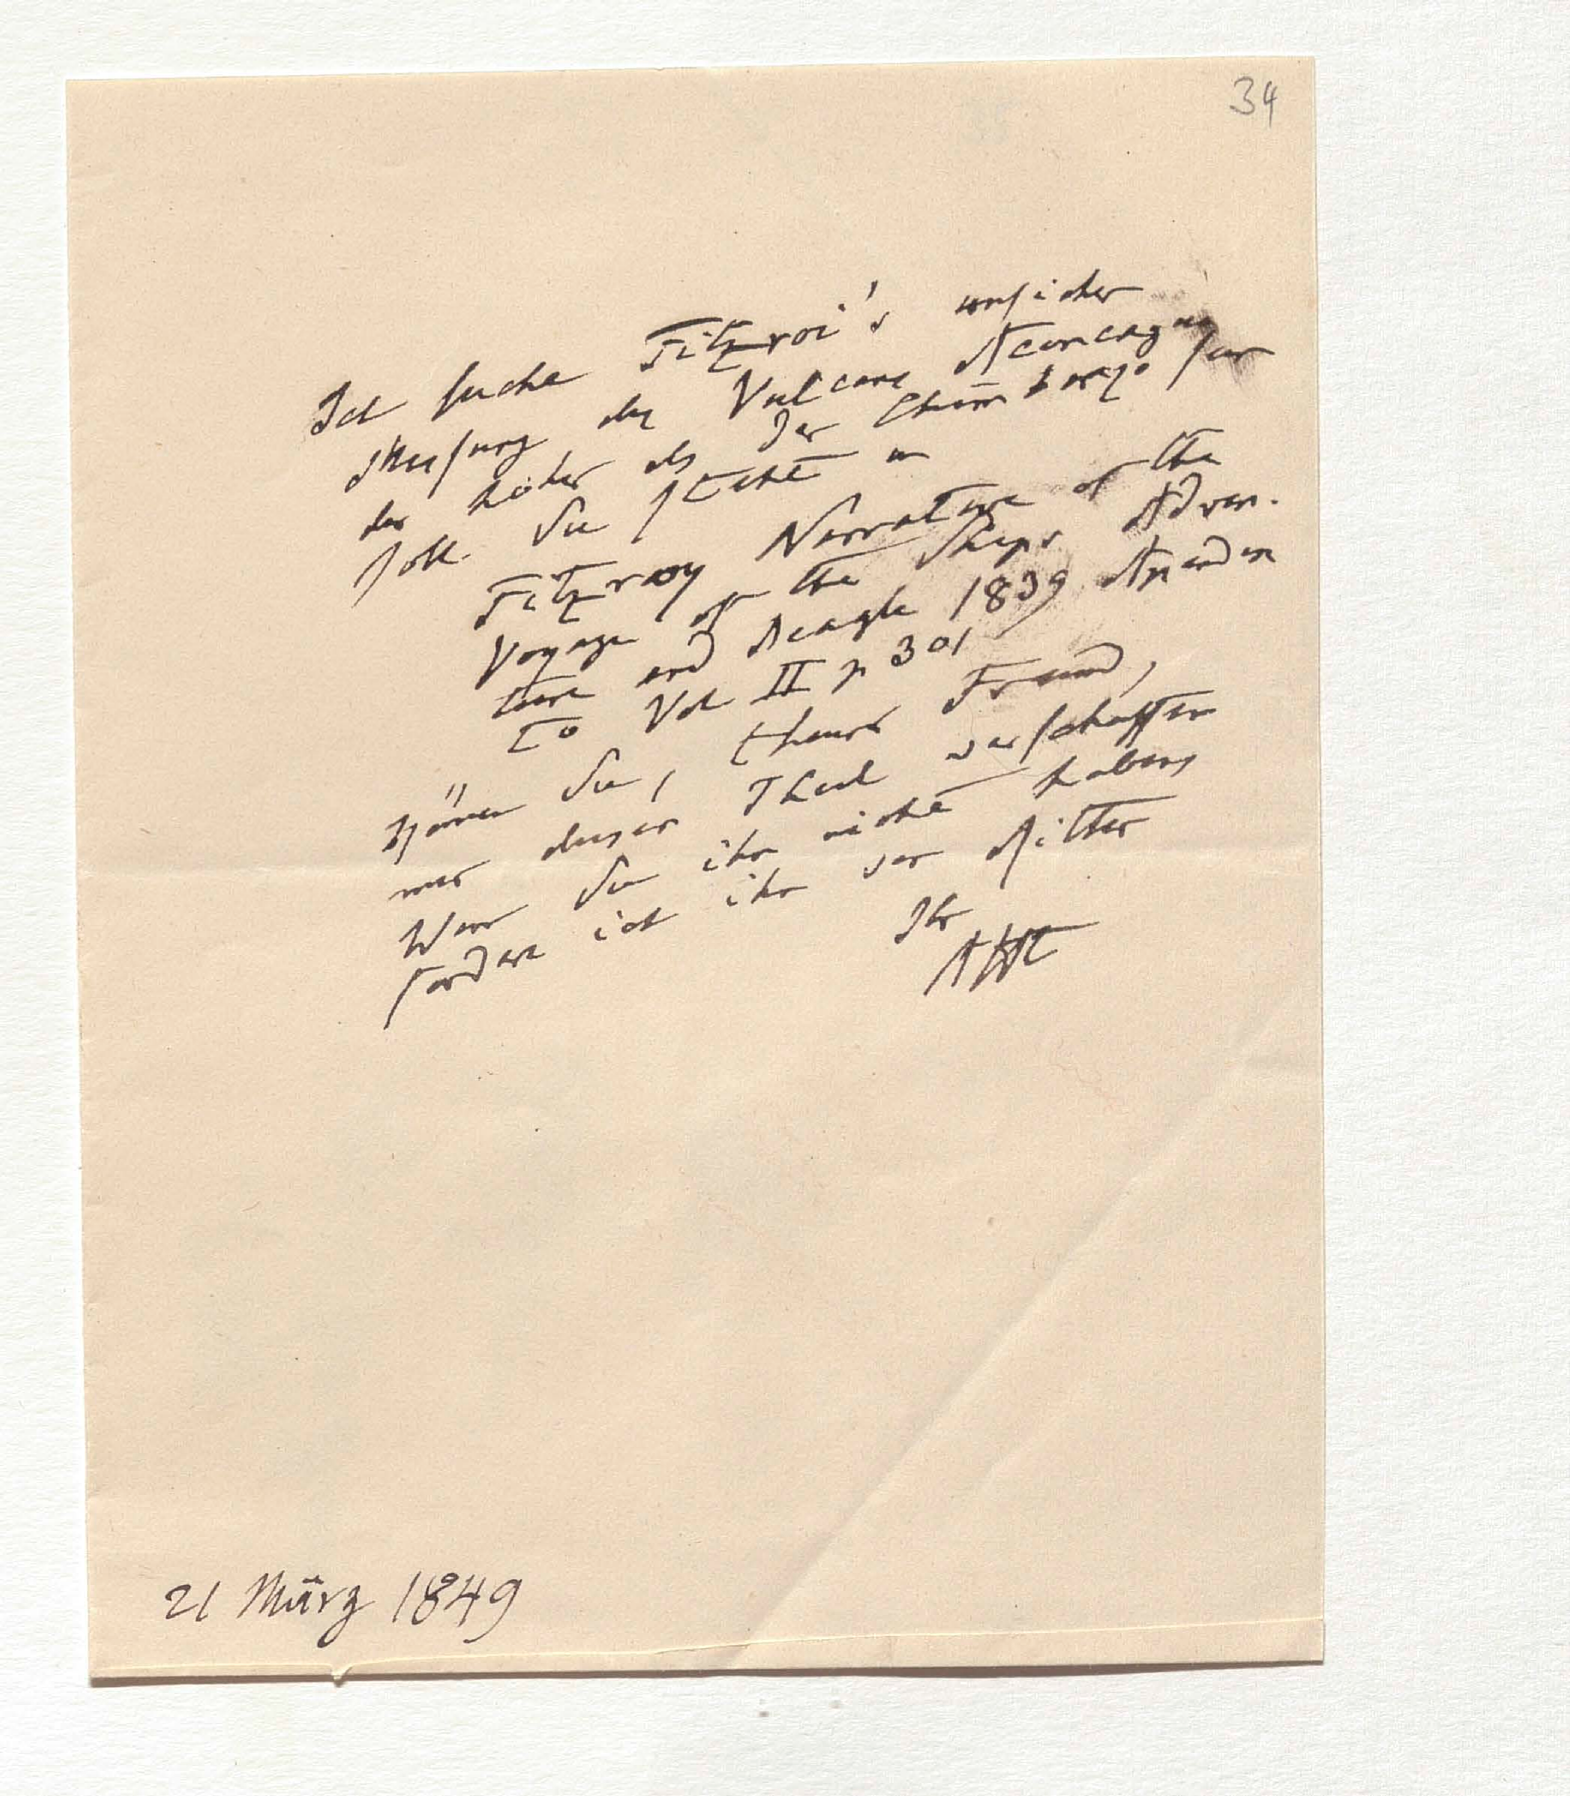 34
Ich suche Fitzroi's unsicher
Messung des Vulcans Aconcagua
der höher als der Chimborazo sein
soll. Sie steht in
Fitzroy Narrative of the
Voyage of the Ships Adven-
ture and Beagle 1839 Apendix
to Vol II p 301
Können Sie, theurer Freund,
mir diesen Theil verschaffen
Wenn Sie ihn nicht haben,
fordere ich ihn von Ritter
Ihr
AHt
21 März 1849